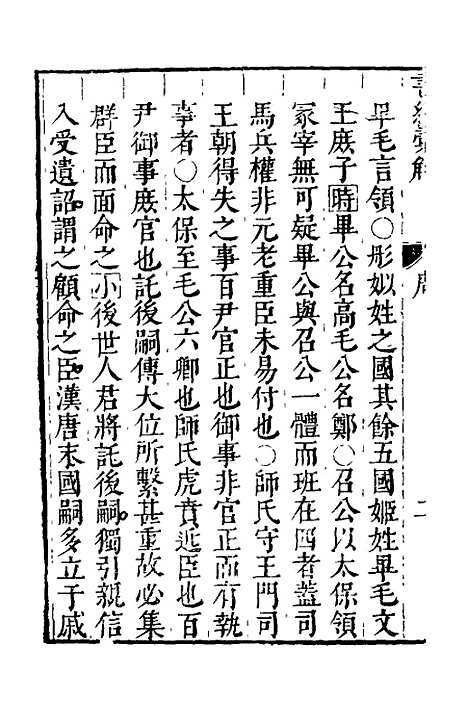 畢毛言領○彤姒姓之國其餘五國姬姓畢毛文
王庶子時畢公名高毛公名鄭○召公以太保領
冢宰無可疑畢公與召公一體而班在四者蓋司
馬兵權非元老重臣未易付也○師氏守王門司
王朝得失之事百尹官正也御事非官正而有執
事者○太保至毛公六卿也師氏虎賁近臣也百
尹御事庶官也託後嗣傳大位所繫甚重故必集
群臣而面命之小後世人君將託後嗣獨引親信
入受遺詔謂之顧命之臣漢唐末國嗣多立子戚